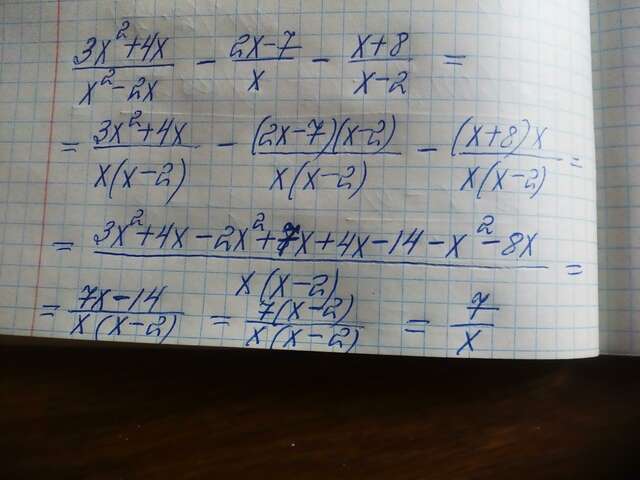 (3x²+4x)/(x²-2x) - (2x-7)/x - (x+8)/(x-2) =
= (3x²+4x)/(x(x-2)) - ((2x-7)(x-2))/(x(x-2)) - ((x+8)x)/(x(x-2)) =
= (3x²+4x-2x²+7x+4x-14-x²-8x)/(x(x-2)) =
= (7x-14)/(x(x-2)) = (7(x-2))/(x(x-2)) = 7/x